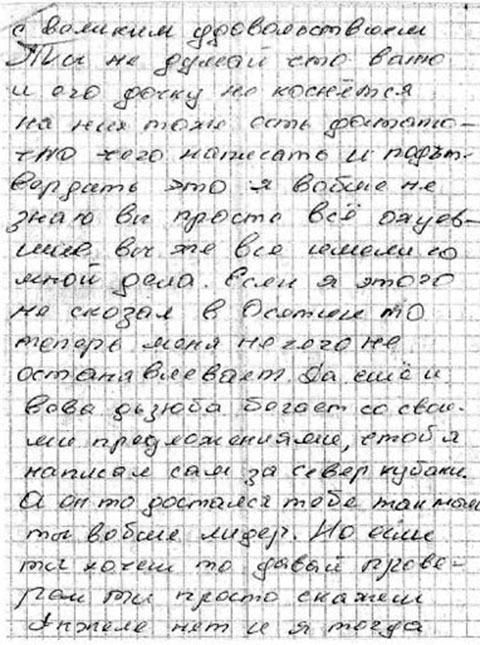 с великим удовольствием
Ты не думай что вато
и его дочку не коснётся
на них тоже есть достато-
чно чего написать и подът-
вердать это я вобще не
знаю вы просто всё охуев-
шие, вы же все имели со
мной дела. Если я этого
не сказал в Осетии то
теперь меня не чего не
останавлевает. Да ещё и
вова дзюба бегает со свои-
ми предложениями, чтоб я
написал сам за север кубани.
А он то достался тебе так
ты вобще лидер. Но если
ты хочеш то давай прове-
рем ты просто скажеш
Анжеле нет и я тогда